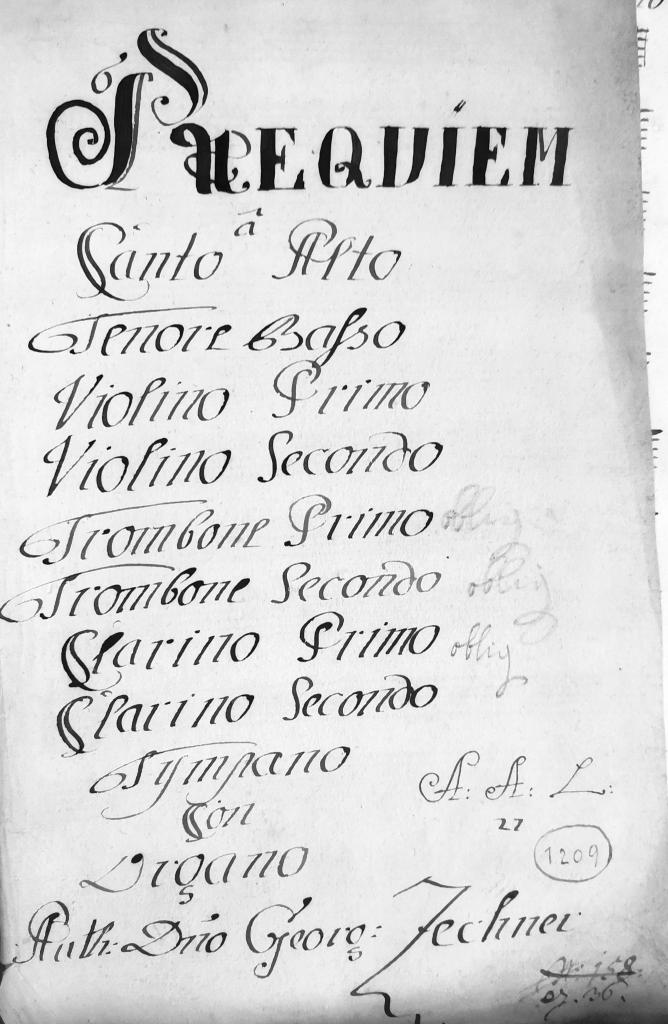 REQUIEM
â
Canto Alto
Tenore Basso
Violino Primo
Violino Secondo
Trombone Primo oblig
Trombone Secondo oblig
Clarino Primo oblig
Clarino Secondo
Tympano
Con
Organo
A: A: L:
27
1209
Auth: Dño Georg: Zechner
No: 158.
36.